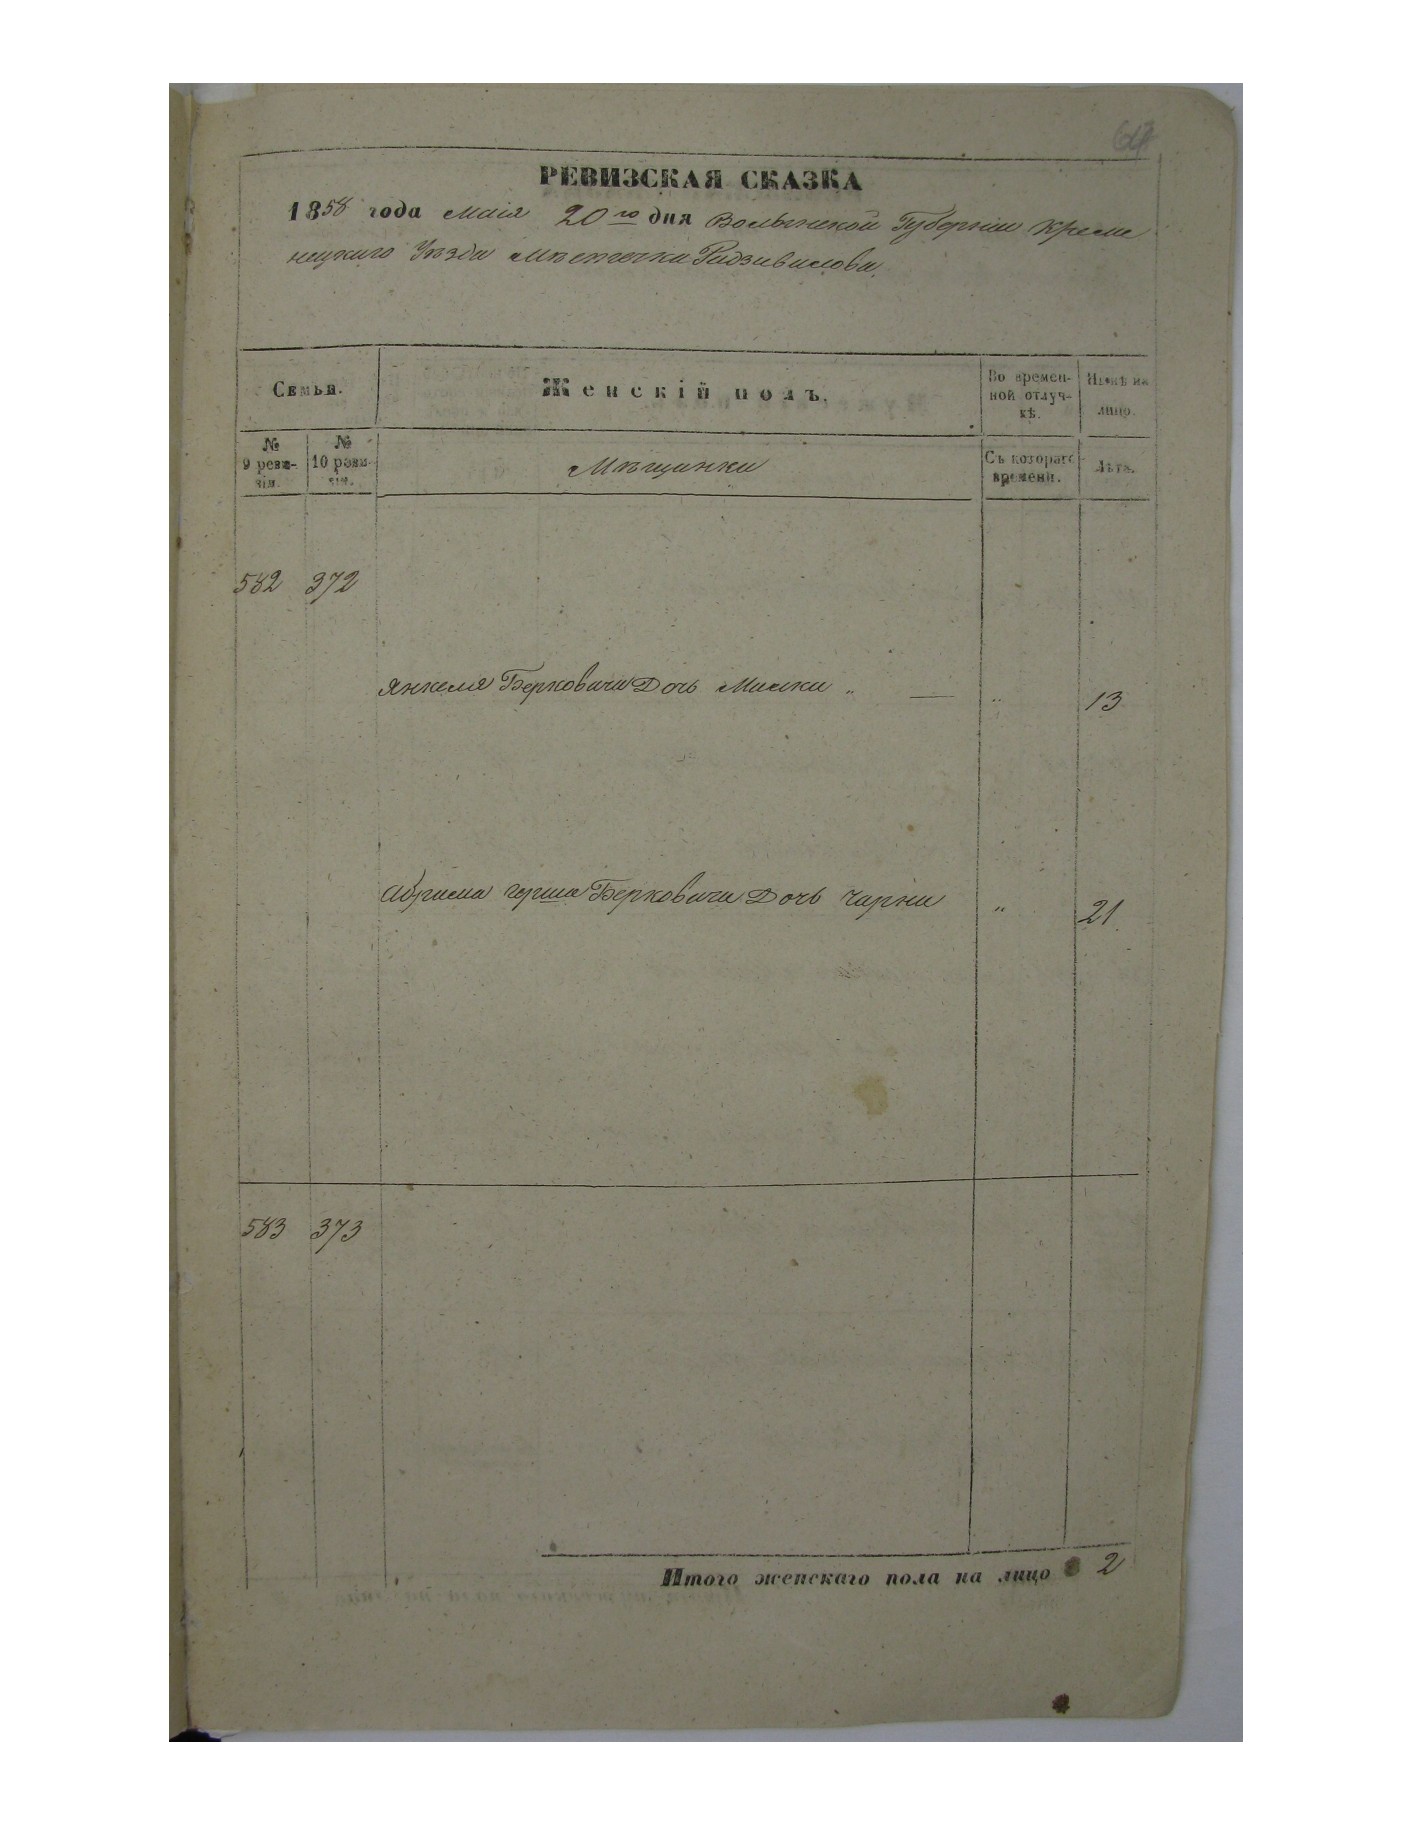 РЕВИЗСКАЯ СКАЗКА
1858 года маія 20го дня Волынской Губерніи Креме
нецкаго Уезда мѣстечка Радзивилова
Семьи.
Женскій полъ.
Во времен-
ной отлуч-
кѣ.
Нынѣ на
лицо.
№
9 реви-
зіи.
№
10 реви-
зіи.
Мѣщанки
Съ котораго
времени.
Лѣта.
582 372
Янкеля Берковича Дочь Малка „ — „ 13
Абрама герша Берковича Дочь Чарна „ 21
583 373
Итого женскаго пола на лицо 2